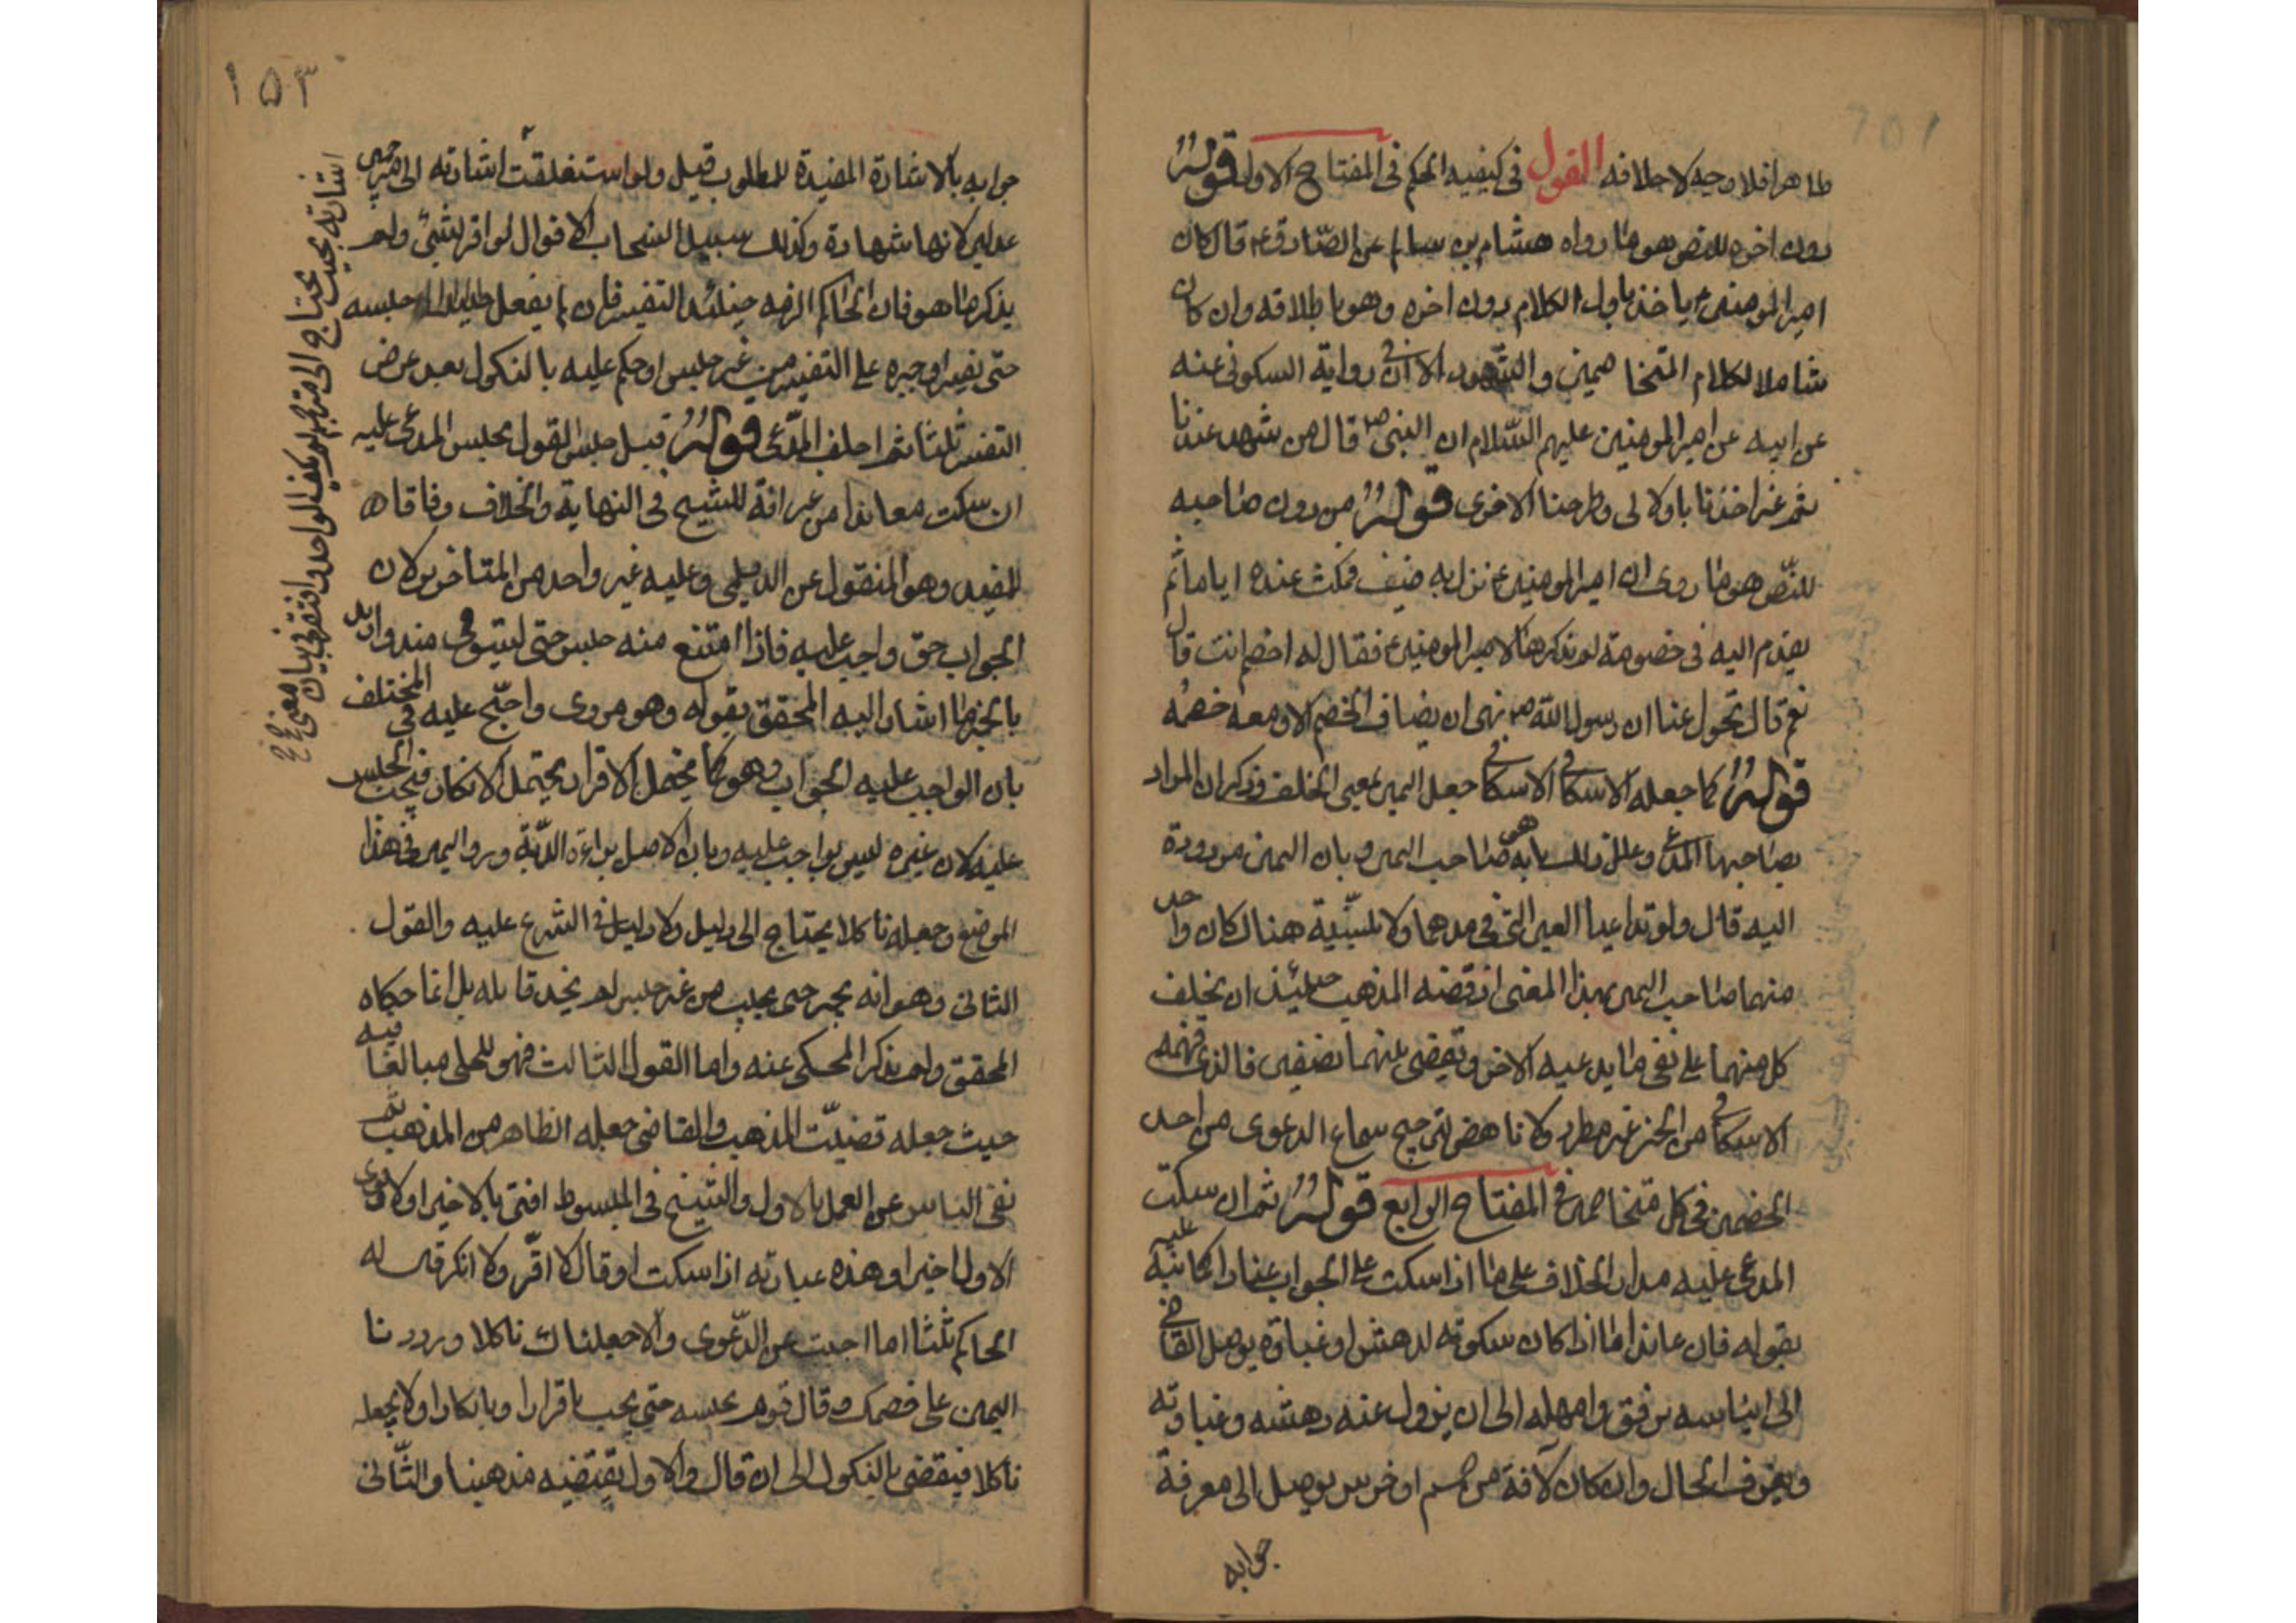 ظاهرا فلا وجه لاطلاقه القول فى كيفيه الحكم فى المفتاح الاول قوله
دون اخره للنص هو ما رواه هشام بن سالم عن الصادق ع قال كان
امير المومنين ع ياخذ باول الكلام دون اخره وهو باطلاقه وان كان
شاملا لكلام المتخاصمين والشهود الا ان فى رواية السكونى عنه
عن ابيه عن امير المومنين عليهم السلام ان النبى ص قال من شهد عندنا
ثم غير اخذنا بالاولى وطرحنا الاخرى قوله من دون صاحبه
للنص هو ما روى ان امير المومنين ع نزل به ضيف فمكث عنده اياما ثم
تقدم اليه فى خصومة لم يذكرها لامير المومنين ع فقال له اخصم انت قال
نعم قال تحول عنا ان رسول الله ص نهى ان يضاف الخصم الا ومعه خصمه
قوله كما جعله الاسكافى الاسكافى جعل اليمين بمعنى الحلف وذكر ان المراد
بصاحبها المدعى وعلل ذلك بانه هو صاحب اليمين وبان اليمين مردودة
اليه قال ولو تداعيا العين التى فى يدهما ولا بينة هناك كان واحد
منهما صاحب اليمين بهذا المعنى اذ قضية المذهب حينئذ ان يحلف
كل منهما على نفى ما يدعيه الاخر وتقضى بينهما نصفين فالذى فهمه
الاسكافى من الخبر غير مطرد ولا ناهض لترجيح سماع الدعوى من احد
الخصمين فى كل متخاصمين فى المفتاح الرابع قوله ثم ان سكت
المدعى عليه مدار الخلاف على ما اذا سكت على الجواب عنادا كما نبه عليه
بقوله فان عاند اما اذا كان سكوته لدهش او غباوة يوصل القاضى
الى ايناسه برفق وامهله الى ان يزول عنه دهشه وغباوته
ويعرف الحال وان كان لآفة من صمم او خرس يوصل الى معرفة
جوابه
١٥٣
جوابه بالاشارة المفيدة للمطلوب قيل ولو استغلقت اشارته الى مترجمين
عدلين لانها شهادة وكذلك سبيل اصحاب الاقوال لو اقر بشئ ولم
يذكر ما هو فان الحاكم الزمه حينئذ التفسير فان لم يفعل حبسه
حتى يفسر او جبره على التفسير من غير حبس او حكم عليه بالنكول بعد عرض
التفسير ثلثا ثم احلف المدعى قوله قيل حبس القول بحبس المدعى عليه
ان سكت معاندا من غير افة للشيخ فى النهاية والخلاف وفاقا
للمفيد وهو المنقول عن الديلمى وعليه غير واحد من المتاخرين لان
الجواب حق واجب عليه فاذا امتنع منه حبس حتى يستوفى منه وايد
بالخبر ما اشار اليه المحقق بقوله وهو مروى واحتج عليه فى المختلف
بان الواجب عليه الجواب وهو كما يحتمل الاقرار يحتمل الانكار فيجب الحبس
عليه لان غيره ليس بواجب عليه وبان الاصل براءة الذمة ورد اليمين فى هذا
الموضع وجعله ناكلا يحتاج الى دليل ولا دليل فى الشرع عليه والقول
الثانى وهو انه يجبر حتى يجيب من غير حبس لم نجد قايله بل انما حكاه
المحقق ولم يذكر المحكى عنه واما القول الثالث فهو للحلى مبالغا فيه
حيث جعله قضية المذهب والقاضى جعله الظاهر من المذهب ثم
نفى الباس عن العمل بالاول والشيخ فى المبسوط افتى بالاخير اولا وقوى
الاول اخيرا وهذه عبارته اذا سكت او قال لا اقر ولا انكر قال له
الحاكم ثلثا اما اجبت عن الدعوى والا جعلناك ناكلا ورددنا
اليمين على خصمك وقال قوم يحبسه حتى يجيب باقرار او بانكار ولا يجعله
ناكلا فيقضى بالنكول الى ان قال والاول يقتضيه مذهبنا والثانى
اشارته بحيث يحتاج الى مترجم لم يكف الواحد وافتقر فى بيان معنى